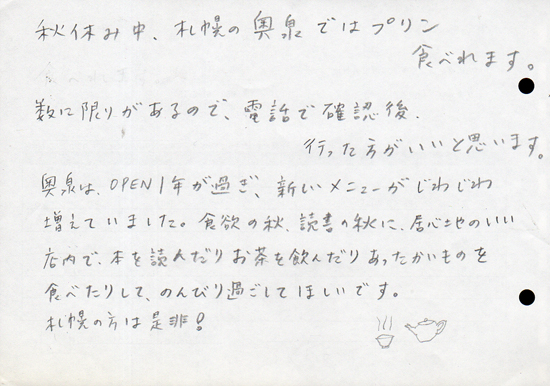 秋休み中、札幌の奥泉ではプリン
食べれます。
数に限りがあるので、電話で確認後、
行った方がいいと思います。
奥泉は、OPEN1年が過ぎ、新しいメニューがじわじわ
増えていました。食欲の秋、読書の秋に、居心地のいい
店内で、本を読んだりお茶を飲んだりあったかいものを
食べたりして、のんびり過ごしてほしいです。
札幌の方は是非!